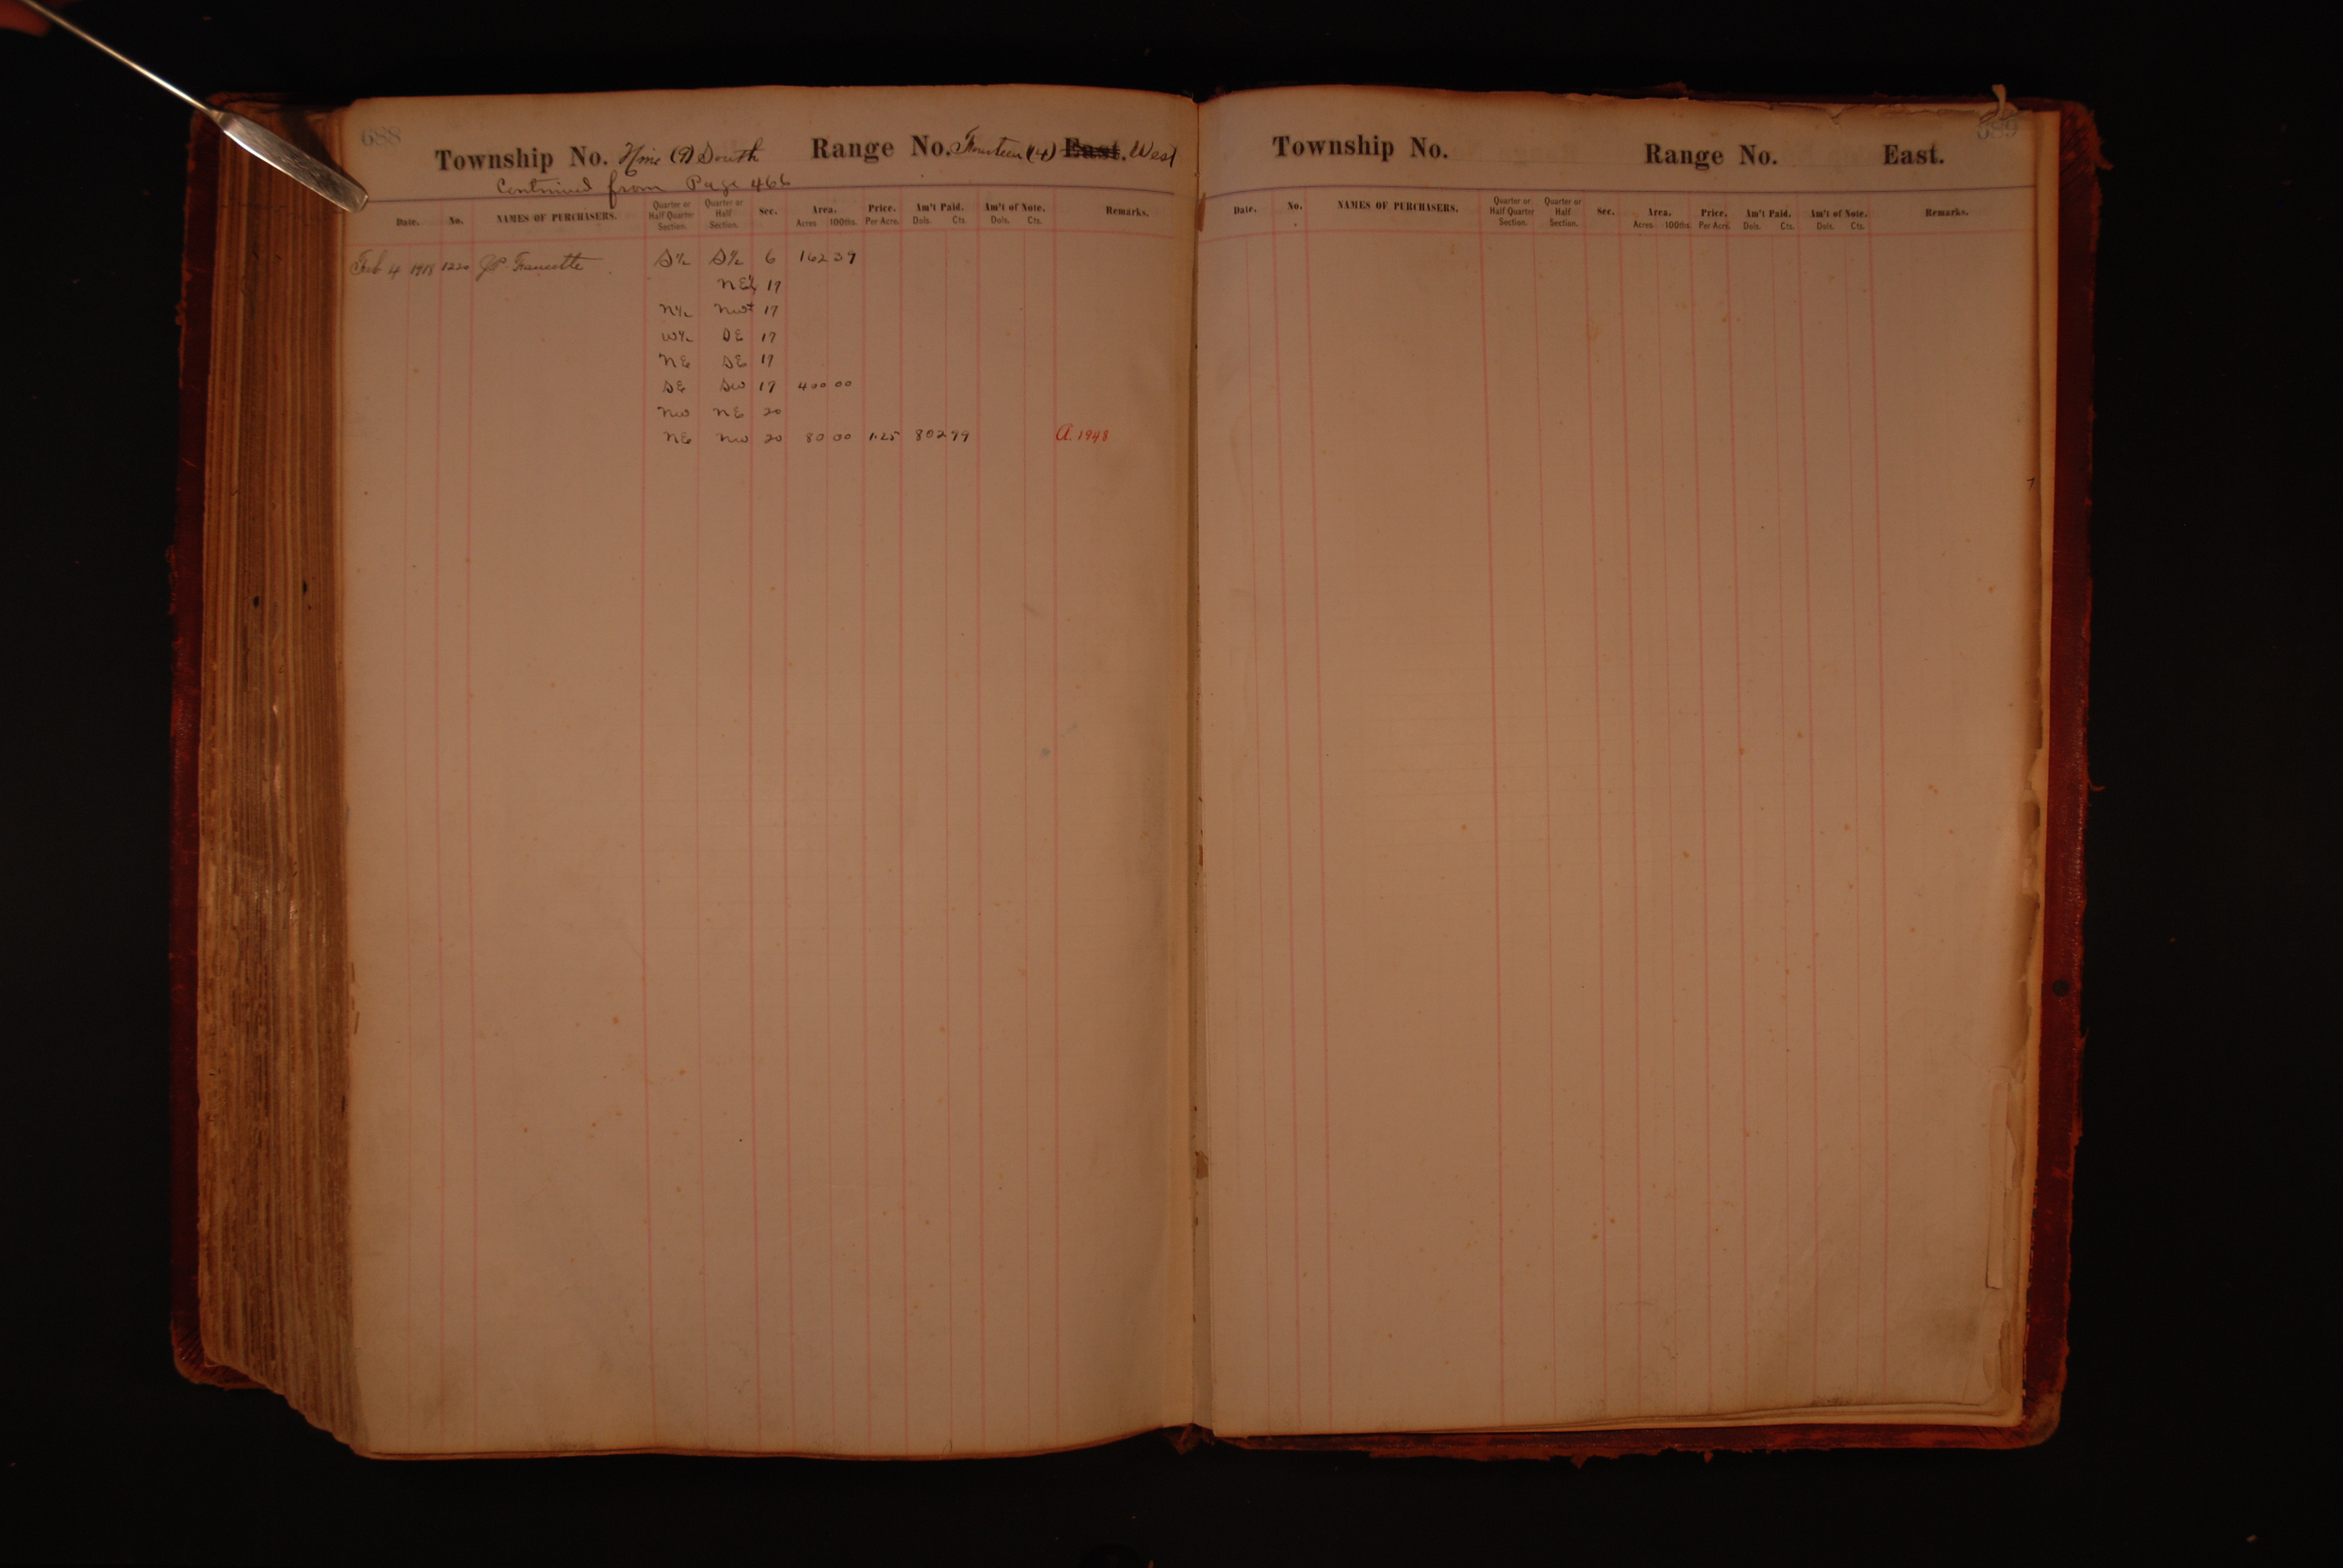 688
Township No. Nine (9) South Range No. Fourteen (14) East. West
Continued from Page 466
Date. No. NAMES OF PURCHASERS. Quarter or Half Quarter Section. Quarter or Half Section. Sec. Area. Acres 100ths. Price. Per Acre. Am't Paid. Dols. Cts. Am't of Note. Dols. Cts. Remarks.
Feb 4 1918 1220 J.P. S½ S½ 6 162 39
NE¼ 17
N½ NW¼ 17
W½ SE 17
NE SE 17
SE SW 17 400 00
NW NE 20
NE NW 20 80 00 1.25 802 99 A. 1948
689
Township No. Range No. East.
Date. No. NAMES OF PURCHASERS. Quarter or Half Quarter Section. Quarter or Half Section. Sec. Area. Acres 100ths. Price. Per Acre. Am't Paid. Dols. Cts. Am't of Note. Dols. Cts. Remarks.